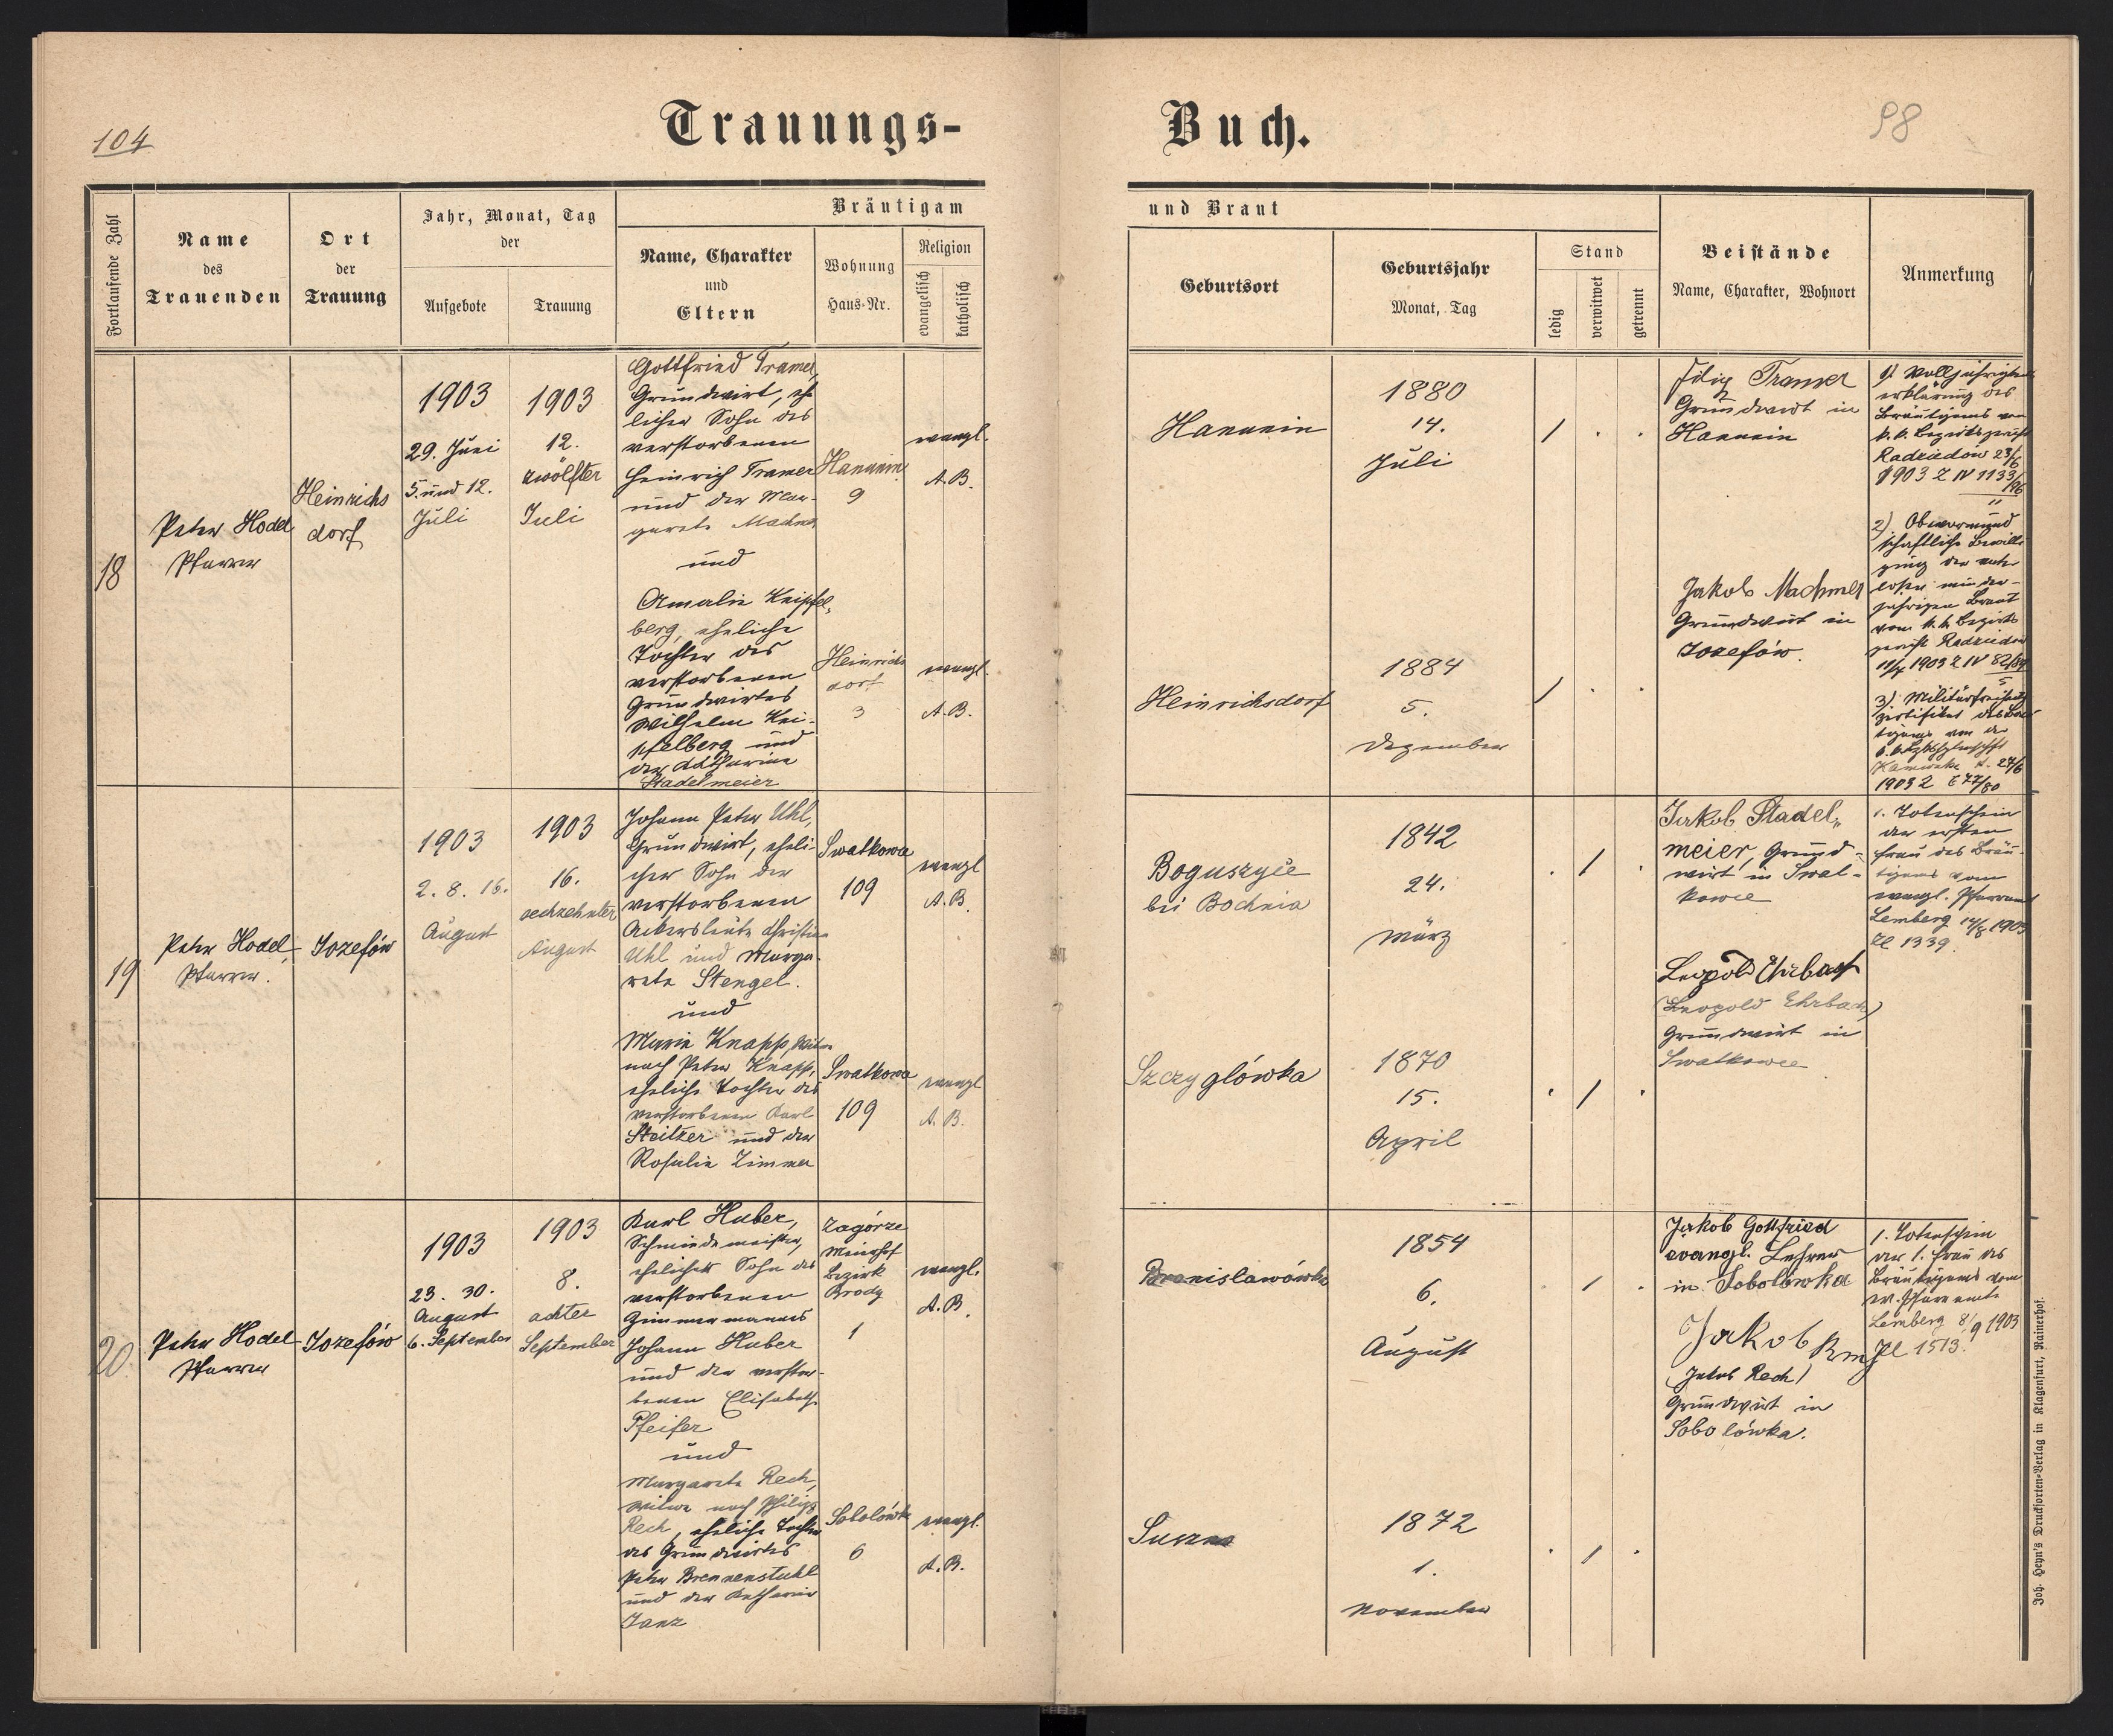 104
Trauungs-
Buch.
98
Fortlaufende Zahl
Name
des
Trauenden
Ort
der
Trauung
Jahr, Monat, Tag
der
Aufgebote
Trauung
Bräutigam
Name, Charakter
und
Eltern
Wohnung
Haus-Nr.
Religion
evangelisch
katholisch
und Braut
Geburtsort
Geburtsjahr
Monat, Tag
Stand
ledig
verwitwet
getrennt
Beistände
Name, Charakter, Wohnort
Anmerkung
18
Peter Hodel
Pfarrer
Heinrichs
dorf
1903
29. Juni
5. und 12.
Juli
1903
12.
zwölfter
Juli
Gottfried Tramer,
Grundwirt, ehe
licher Sohn des
verstorbenen
Heinrich Tramer
und der Mar-
garete
und
Amalie Keipfel-
berg, eheliche
Tochter des
verstorbenen
Grundwirtes
Wilhelm Kei-
pfelberg und
der Katharina
Stadelmeier
Hanunin
9
evangl.
A.B.
Heinrichs
dorf
3
evangl.
A.B.
Hanunin
1880
14.
Juli
/ . .
Heinrichsdorf
1884
5.
Dezember
/ . .
Filip Tramer
Grundwirt in
Hanunin
Jakob Machmer
Grundwirt in
Jozefów.
1) Volljährigkeits
erklärung des
Bräutigams vom
k.k. Bezirksgericht
Radziechów 23/6
1903 Z IV 1133/96
11
2) Obervormund
schaftliche Bewilli
gung der vater
losen minder-
jährigen Braut
vom k.k. Bezirks
gericht Radziechów
1903 Z IV 82/99
5
3) Militärfreiheits
zertifikat des Bräu
tigams von der
Kamionka d. 27/6
1903 Z 677/80
19
Peter Hodel,
Pfarrer.
Jozefów
1903
2. 8. 16.
August
1903
16.
sechzehnter
August
Johann Peter Uhl,
Grundwirt, eheli-
cher Sohn der
verstorbenen
Ackersleute Christian
Uhl und Marga-
rete Stengel.
und
Marie Knapp, Witwe
nach Peter Knapp,
eheliche Tochter des
verstorbenen Karl
Steitzer und der
Rosalie Zimmer
Swatkowa
109
evangl
A.B.
Swatkowa
109
evangl
A.B.
Boguszyće
bei Bochnia
1842
24.
März
. / .
Szczyglówka
1870
15.
April
. / .
Jakob Stadel-
meier, Grund-
wirt in Swat-
kowce
Leopold Ehrbach
(Leopold Ehrbach)
Grundwirt in
Swatkowce
1. Totenschein
der ersten
Frau des Bräu-
tigams vom
evangl. Pfarramt
Lemberg 14/8 1903
Zl 1339.
20
Peter Hodel
Pfarrer
Jozefów
1903
23. 30.
August
6. September
1903
8.
achter
September
Karl Huber,
Schmiedemeister,
ehelicher Sohn des
verstorbenen
Zimmermannes
Johann Huber
und der verstor-
benen Elisabeth
Pfeifer
und
Margarete Rech,
Witwe nach Philipp
Rech, eheliche Tochter
des Grundwirtes
Peter Brennenstuhl
und der Katharina
Janz
Zagórze
Meierhof
Bezirk
Brody
1
evangl.
A.B.
Sobolówka
6
evangl.
A.B.
Bronislawówka
1854
6.
August
. / .
1872
1.
November
. / .
Jakob Gottfried
evangl. Lehrer
in Sobolówka
Jakob
(Jakob Rech)
Grundwirt in
Sobolówka.
1. Totenschein
der 1. Frau des
Bräutigams vom
ev. Pfarramte
Lemberg 8/9 1903
Zl 1513.
Joh. Heyn's Drucksorten-Verlag in Klagenfurt, Rainerhof.